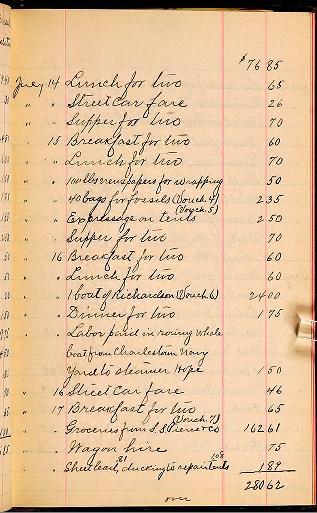 $76 85
July 14 Lunch for two 65
" " Street Car fare 26
" " Supper for two 70
" 15 Breakfast for two 60
" " Lunch for two 70
" " 100 lbs newspapers for wrapping 50
" " 40 bags for fossils (Vouch. 4) 2 35
(Vouch. 5)
" " Expressage on tents 2 50
" " Supper for two 70
" 16 Breakfast for two 60
" " Lunch for two 60
" " 1 boat of Richardson (Vouch. 6) 24 00
" " Dinner for two 1 75
" " Labor paid in rowing whale
boat from Charlestown Navy
Yard to steamer Hope 1 50
" 16 Street Car fare 46
" 17 Breakfast for two 65
(Vouch. 7)
" " Groceries from S.S. Pierce & Co 162 61
" " Wagon hire 75
" " Sheet lead, .81 ducking to repair tents 1.08 1 89
280 62
over